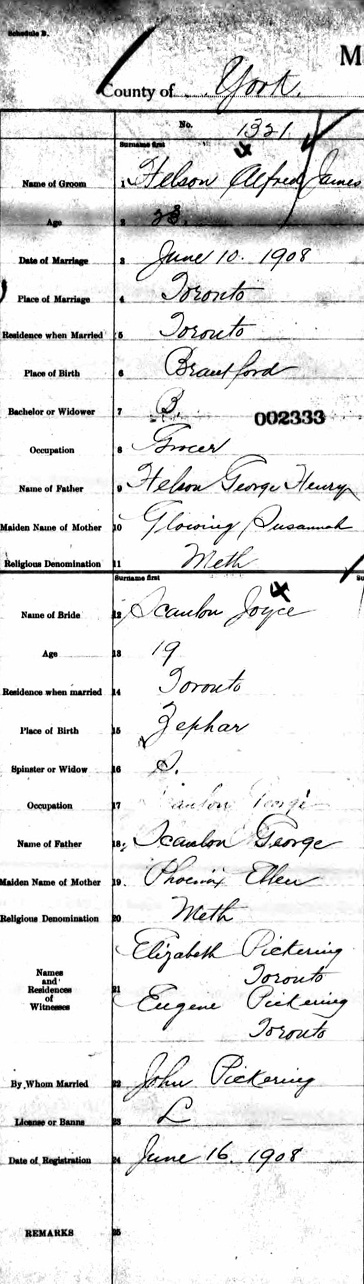 Schedule B.
M
County of York.
No. 1321
Surname first
Name of Groom 1 Helson Alfred James
Age 2 23.
Date of Marriage 3 June 10. 1908
Place of Marriage 4 Toronto
Residence when Married 5 Toronto
Place of Birth 6 Brantford
Bachelor or Widower 7 B.
002333
Occupation 8 Grocer
Name of Father 9 Helson George Henry
Maiden Name of Mother 10 Glowing Susannah
Religious Denomination 11 Meth
Surname first
Name of Bride 12 Scanlon Joyce
Age 13 19
Residence when married 14 Toronto
Place of Birth 15 Zephar
Spinster or Widow 16 S.
Occupation 17 Scanlon George
Name of Father 18 Scanlon George
Maiden Name of Mother 19 Phoenix Ellen
Religious Denomination 20 Meth
Names and Residences of Witnesses 21 Elizabeth Pickering
Toronto
Eugene Pickering
Toronto
By Whom Married 22 John Pickering
License or Banns 23 L
Date of Registration 24 June 16. 1908
REMARKS 25